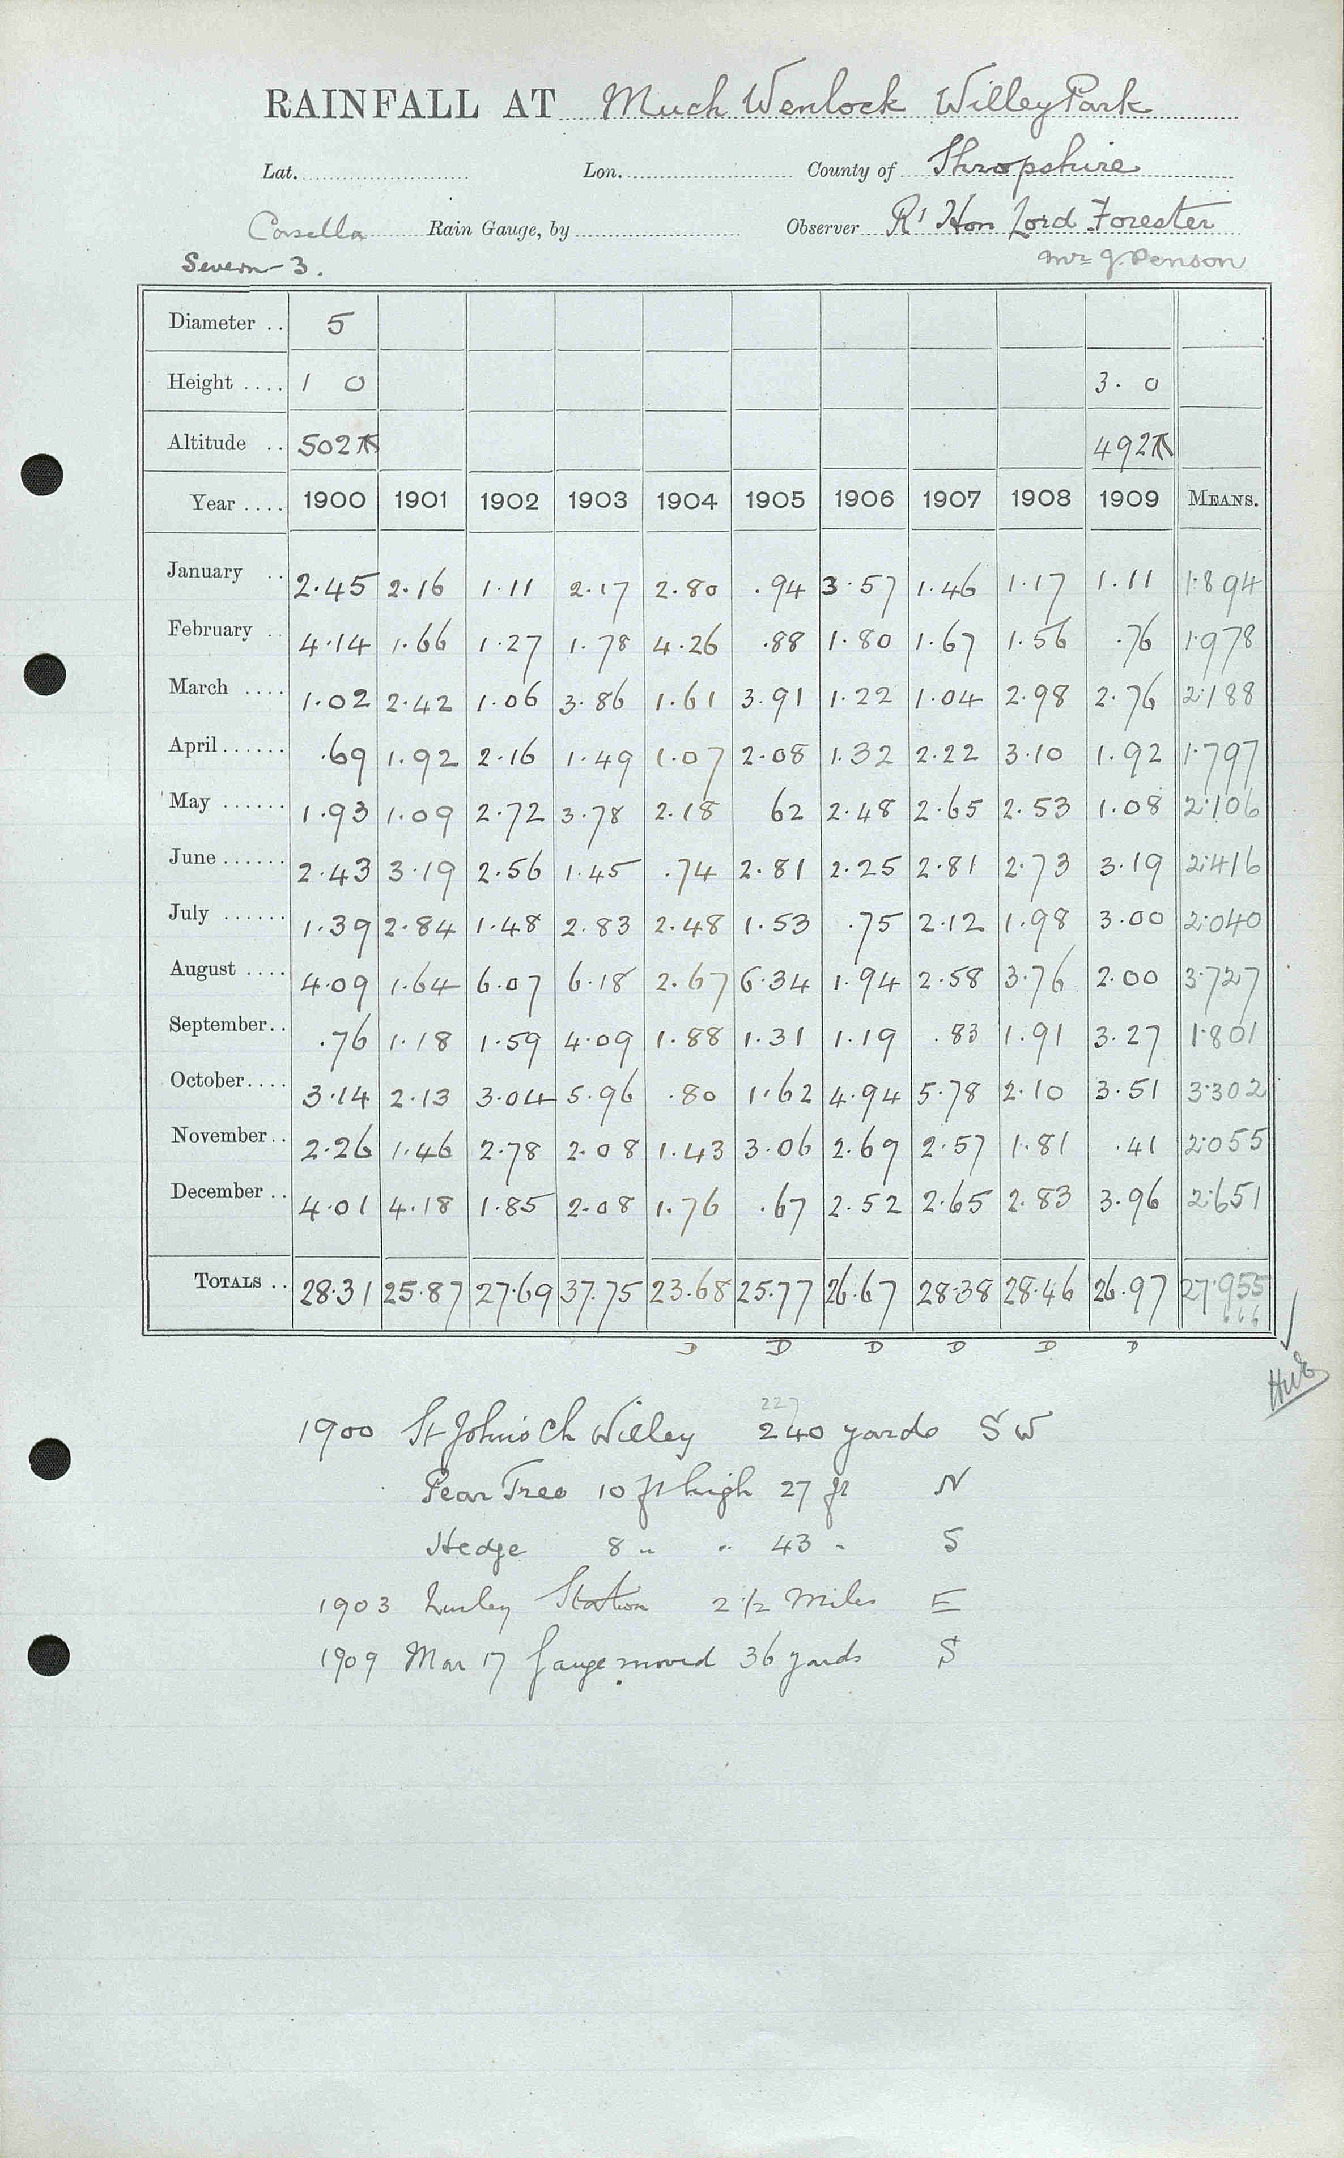 RAINFALL AT Much Wenlock Willey Park
Lat. Lon. County of Shropshire
Casella Rain Gauge, by Observer Rt Hon Lord Forester
Severn-3. Mr J. Penson
Diameter .. 5
Height .... 1 0 3. 0
Altitude .. 502 492
Year .... 1900 1901 1902 1903 1904 1905 1906 1907 1908 1909 MEANS.
January .. 2.45 2.16 1.11 2.17 2.80 .94 3.57 1.46 1.17 1.11 1.894
February .. 4.14 1.66 1.27 1.78 4.26 .88 1.80 1.67 1.56 .76 1.978
March .... 1.02 2.42 1.06 3.86 1.61 3.91 1.22 1.04 2.98 2.76 2.188
April ...... .69 1.92 2.16 1.49 1.07 2.08 1.32 2.22 3.10 1.92 1.797
May ...... 1.93 1.09 2.72 3.78 2.18 62 2.48 2.65 2.53 1.08 2.106
June ...... 2.43 3.19 2.56 1.45 .74 2.81 2.25 2.81 2.73 3.19 2.416
July ...... 1.39 2.84 1.48 2.83 2.48 1.53 .75 2.12 1.98 3.00 2.040
August .... 4.09 1.64 6.07 6.18 2.67 6.34 1.94 2.58 3.76 2.00 3.727
September.. .76 1.18 1.59 4.09 1.88 1.31 1.19 .83 1.91 3.27 1.801
October.... 3.14 2.13 3.04 5.96 .80 1.62 4.94 5.78 2.10 3.51 3.302
November.. 2.26 1.46 2.78 2.08 1.43 3.06 2.69 2.57 1.81 .41 2.055
December .. 4.01 4.18 1.85 2.08 1.76 .67 2.52 2.65 2.83 3.96 2.651
TOTALS .. 28.31 25.87 27.69 37.75 23.68 25.77 26.67 28.38 28.46 26.97 27.955
666
D D D D D D
227
1900 St John's Ch Willey 240 yards SW
Pear Tree 10 ft high 27 ft N
Hedge 8 " " 43 " S
1903 Station 2 1/2 Miles E
1909 Mar 17 Gauge moved 36 yards S